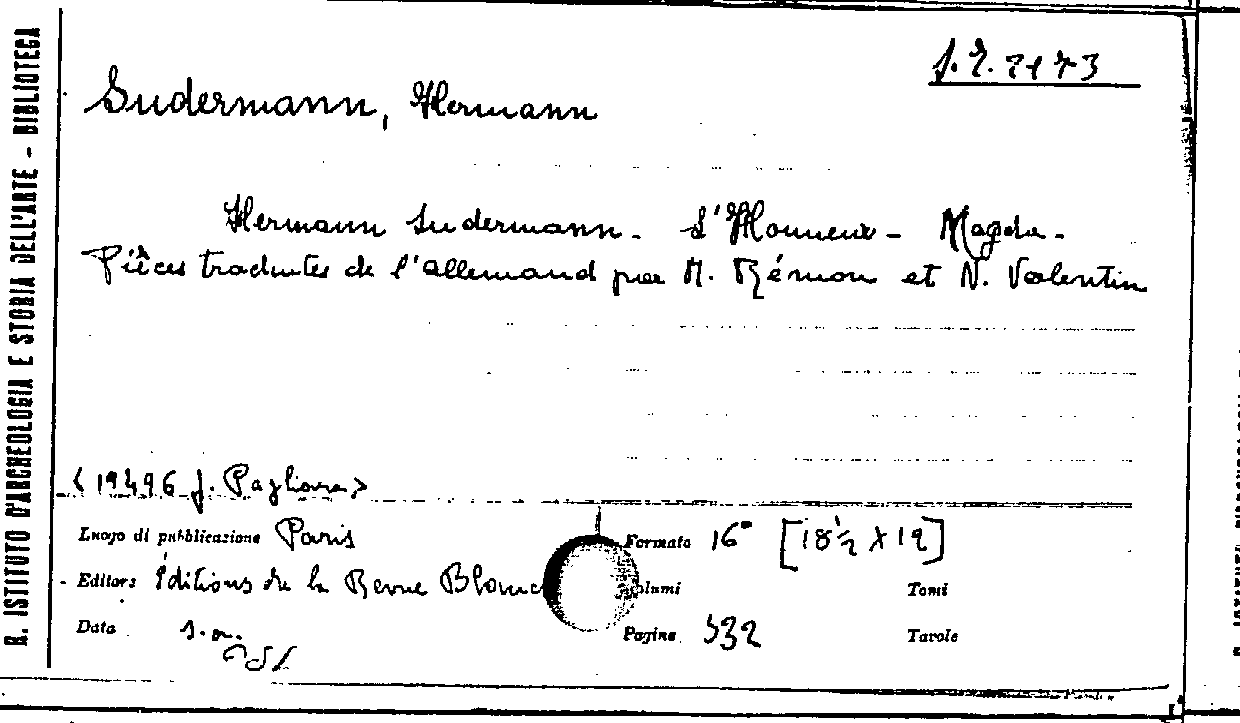 R. ISTITUTO D'ARCHEOLOGIA E STORIA DELL'ARTE - BIBLIOTECA
Sudermann, Hermann
Hermann Sudermann. L'Honneur - Magda.
Pièces traduites de l'allemand par M. Rémon et N. Valentin
<19496 f. Pagliara>
Luogo di pubblicazione Paris
Formato 16° [18½ X 12]
Editore Éditions de la Revue Blanc
Volumi
Tomi
Data s.a.
Pagine 332
Tavole